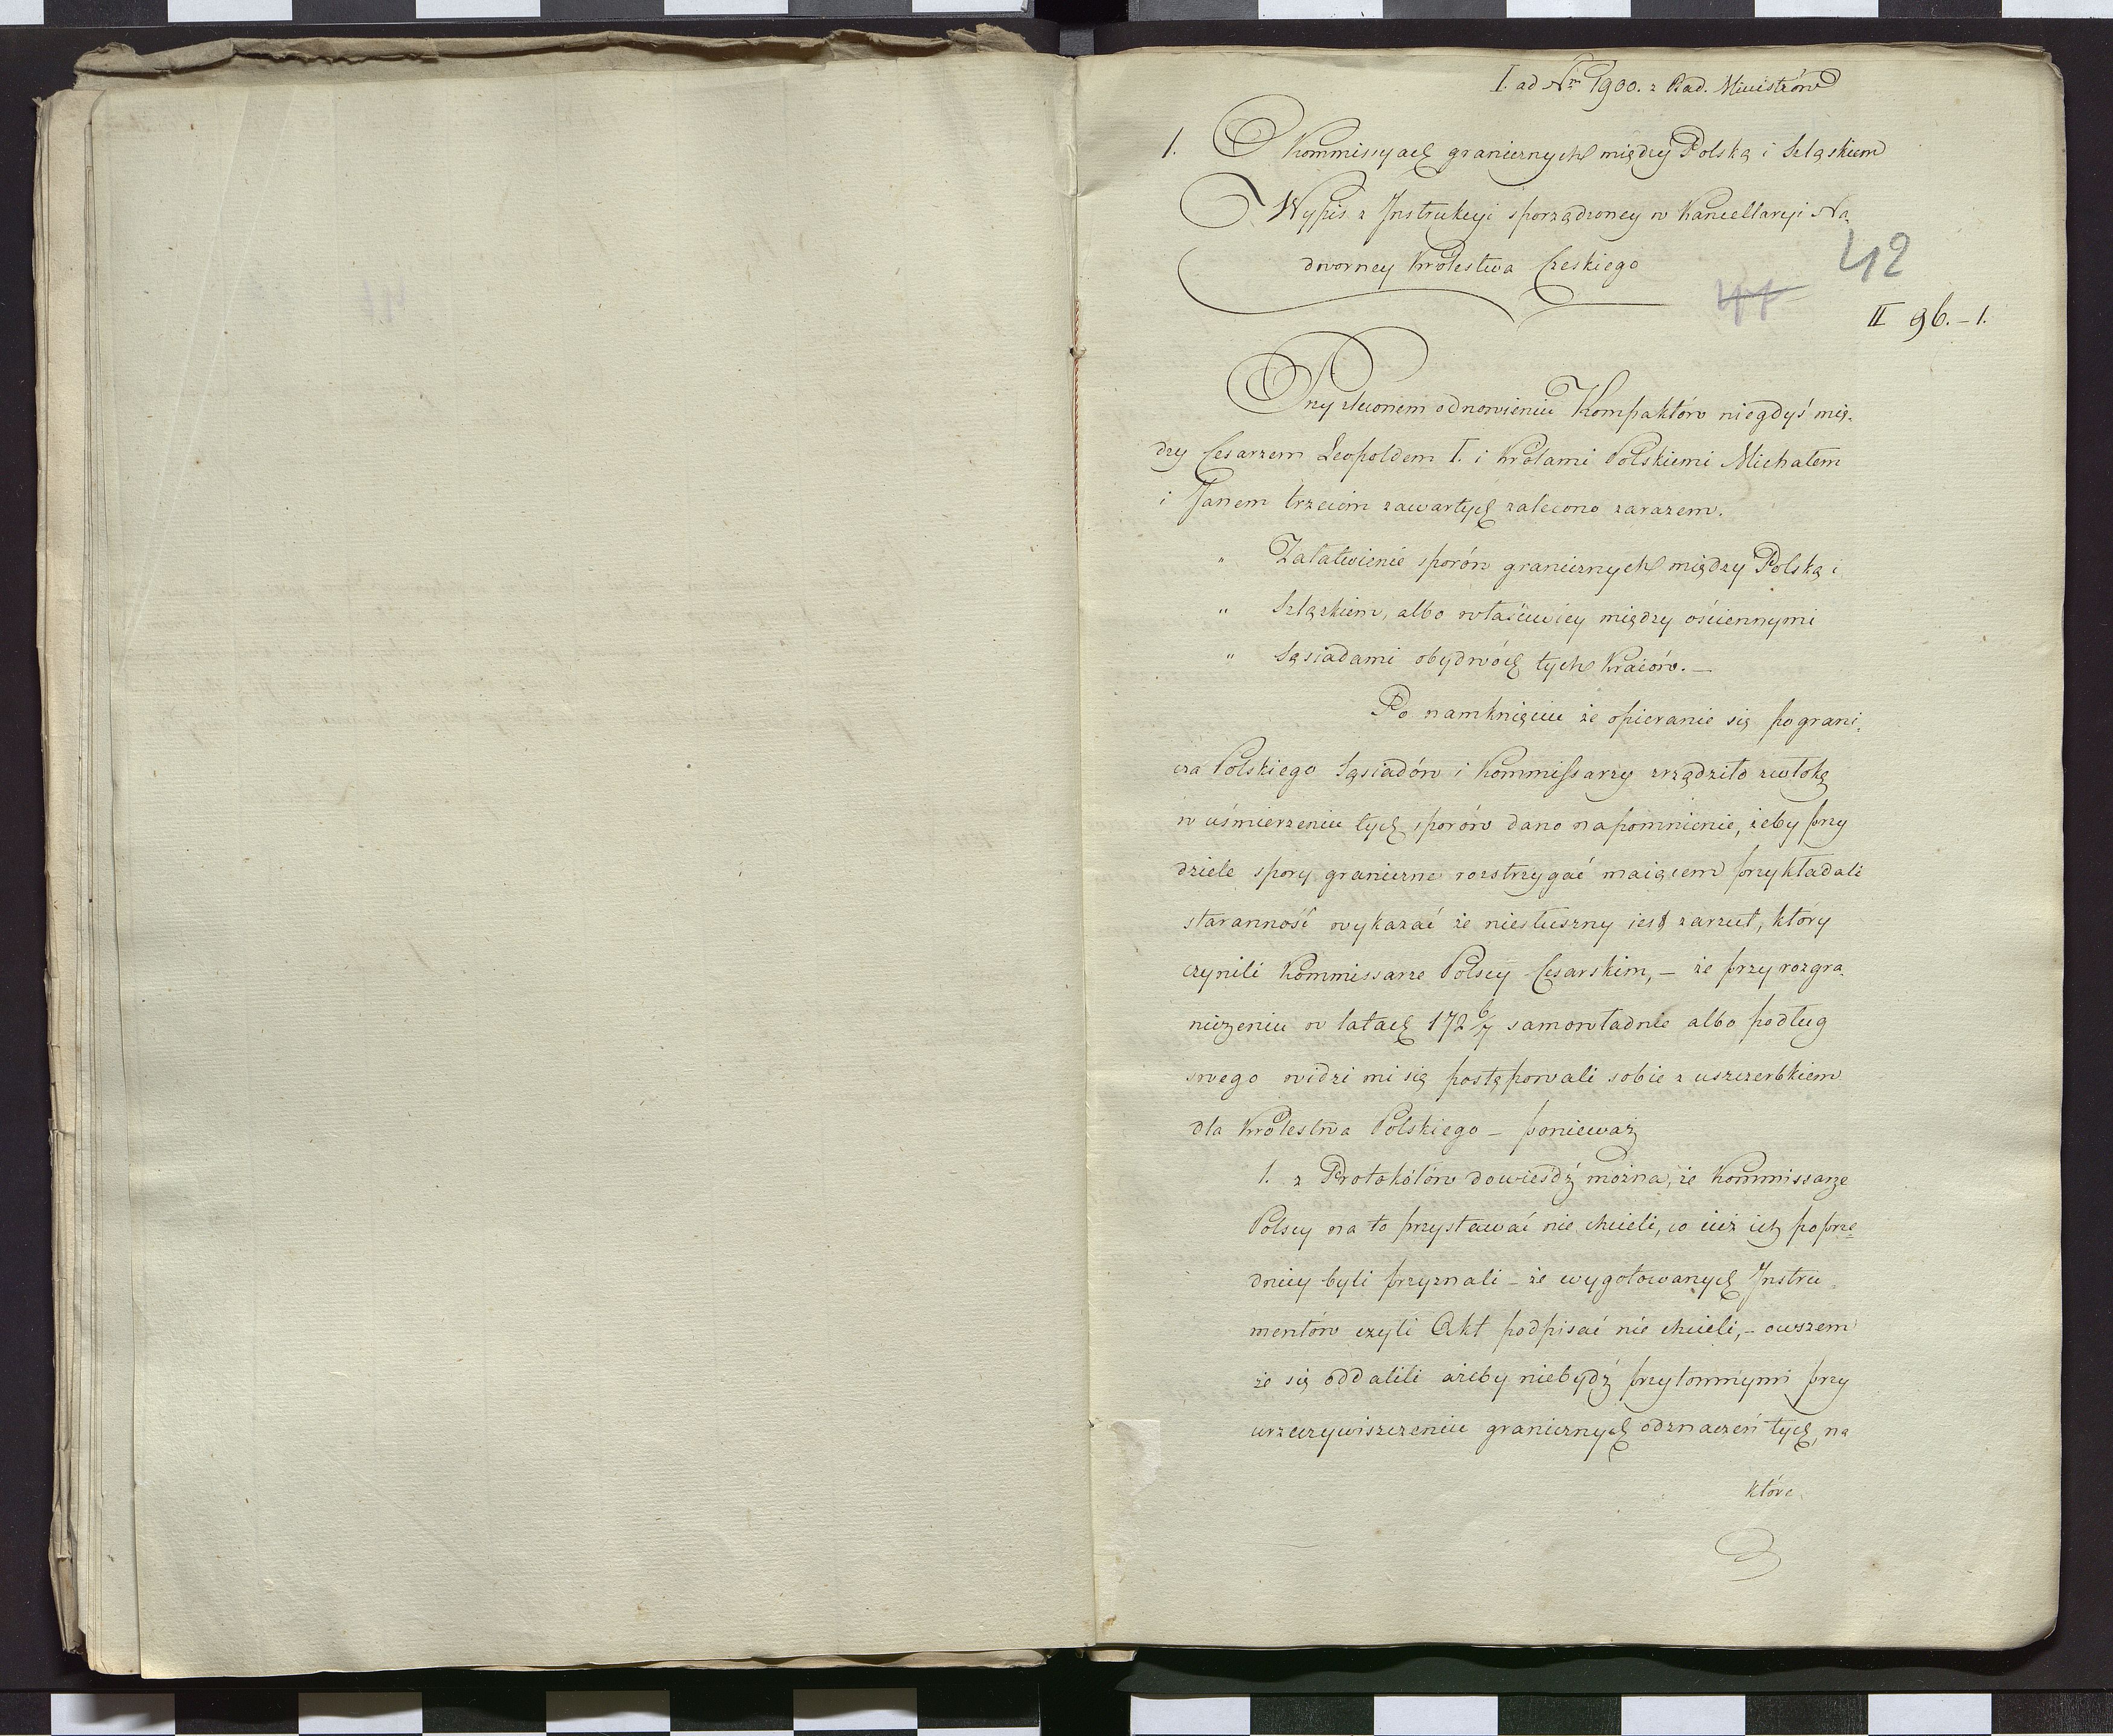 I. ad Nrm 1900. z Rad. Ministrów
1. O Kommissyach granicznych między Polską i Szląskiem
Wypis z Jnstrukcyi sporządzoney w Kancellaryi Na-
dworney Królestwa Czeskiego
42
41
II 96.-1.
Przy zleconem odnowieniu Kompaktów niegdyś mię-
dzy Cesarzem Leopoldem I. i Królami Polskiemi Michałem
i Janem trzecim zawartych zalecono zarazem.
" Załatwienie sporów granicznych między Polską i
" Szląskiem, albo właściwiey między ościennymi
" Sąsiadami obydwóch tych Kraiów. —
Po namknięciu że opieranie się pograni-
cza Polskiego Sąsiadów i Kommissarzy zrządziło zwłokę
w uśmierzeniu tych sporów dano napomnienie, żeby przy
dziele spory graniczne rozstrzygać maiącem przykładali
staranność wykazać że niesłuszny iest zarzut, który
czynili Kommissarze Polscy Cesarskim, — że przy rozgra-
niczeniu w latach 172 6/7 samowładnie albo podług
swego widzi mi się postępowali sobie z uszczerbkiem
dla Królestwa Polskiego — ponieważ
1. z Protokółów dowieśdź można, że Kommissarze
Polscy na to przystawać nie chcieli, co iuż ich poprze-
dnicy byli przyznali — że wygotowanych Jnstru-
mentów czyli Akt podpisać nie chcieli, — owszem
że się oddalili ażeby niebydź przytomnymi przy
urzeczywiszczeniu granicznych odznaczeń tych, na
które